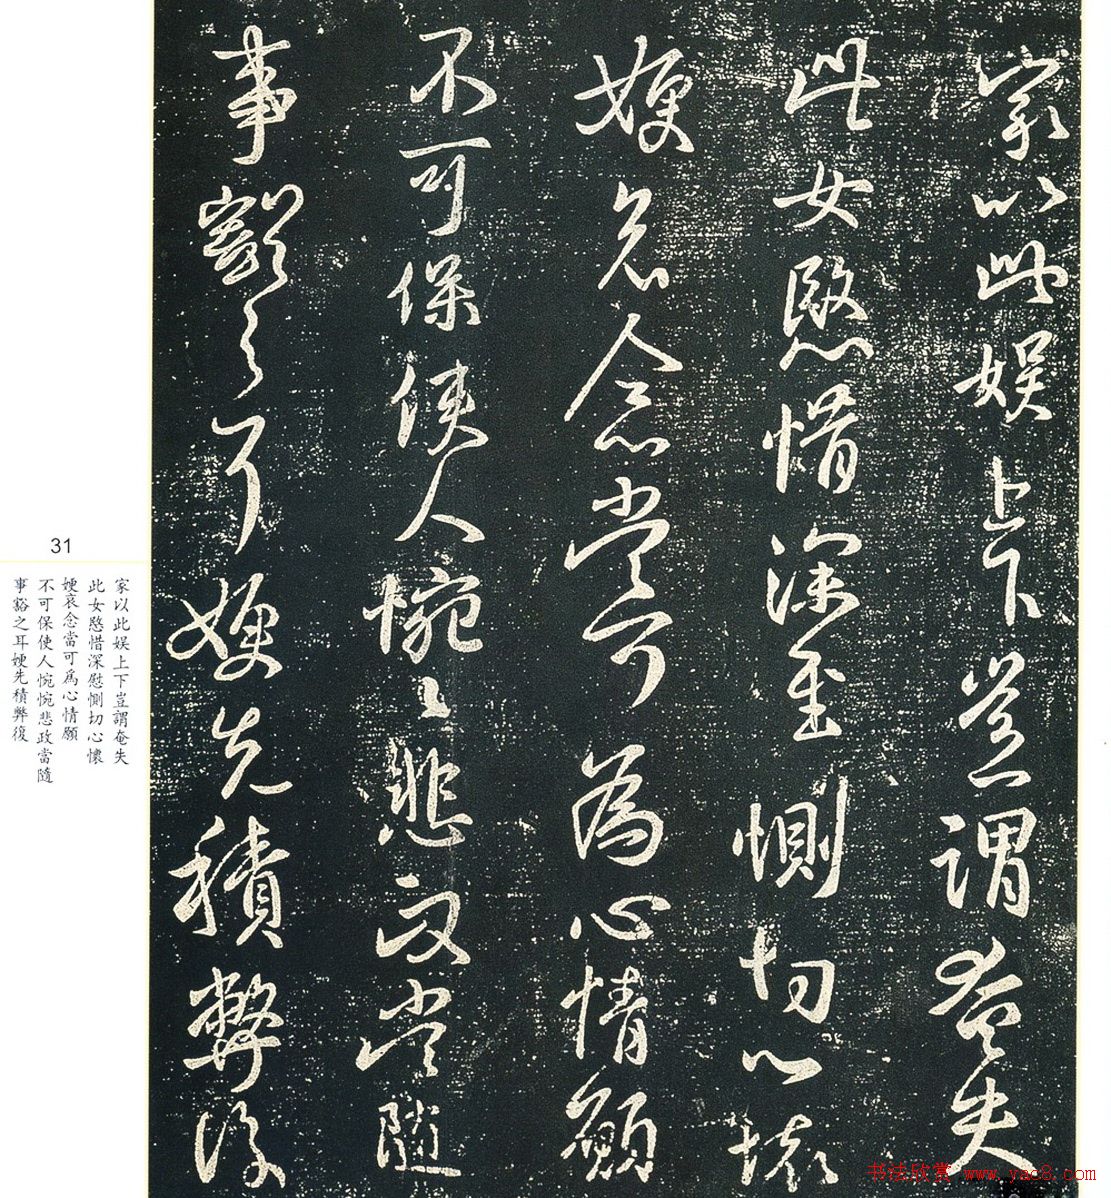 家以此娱上下豈謂奄失
此女愍惜深至惻切心懷
㛐哀念當可為心情願
不可保使人惋〻悲政當隨
事豁之耳㛐先積弊復
31
家以此娱上下豈謂奄失
此女愍惜深慰惻切心懷
㛐哀念當可爲心情願
不可保使人惋惋悲政當隨
事豁之耳㛐先積弊復
书法欣赏 www.yac8.com